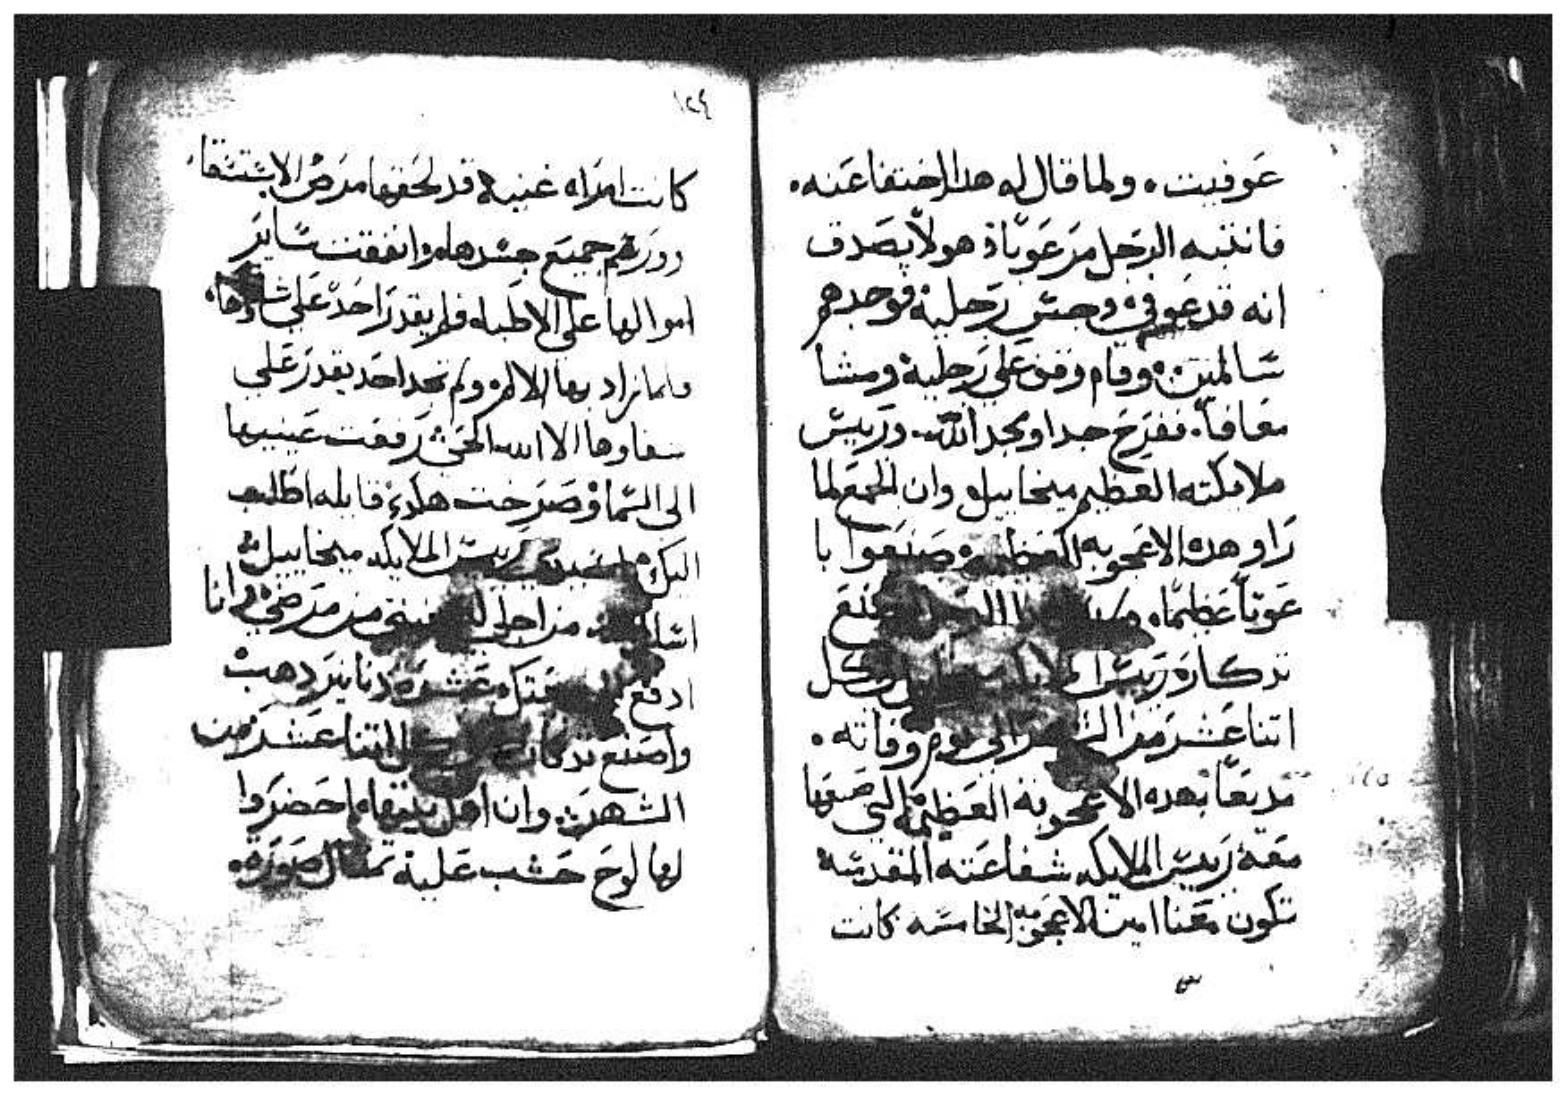 عوفيت . ولما قال له هدا اختفا عنه .
فانتبه الرجل مرعوبا ذ هو لا يصدق
انه قد عوفي وجس رجليه فوجدهم
سالمين . وقام وقف علي رجليه ومشا
معافا . ففرح جدا ومجد الله . وريس
ملايكته العظيم ميخاييل وان الجمع لما
راو هده الاعجوبه العظيمه صنعوا با
عوتا عظيما .
تدكار ريس
اتنا عشر من الي يوم وفاته .
مديعا بهده الاعجوبه العظيمة التي صنعها
معه ريس الملايكه شفاعته المقدسه
تكون معنا امين الاعجوبه الخامسه كانت
١٢٤
كانت امراه غنيه قد لحقها مرض الاستسقا
وورم جميع جسدها وانفقت ساير
اموالها علي الاطبا فلم يقدر احد علي شفاوها .
ولما زاد بها الالم ولم تجد احد يقدر علي
سفاوها الا الله الحي رفعت عينيها
الي السما وصرخت هكدي قايله اطلب
اليك ريس الملايكه ميخاييل
من اجل من مرضي وانا
ادفع عشره دنانير دهب
واصنع اتنا عشر من
الشهر وان اهل بيتها احضروا
لها لوح خشب عليه تمتال صورة .